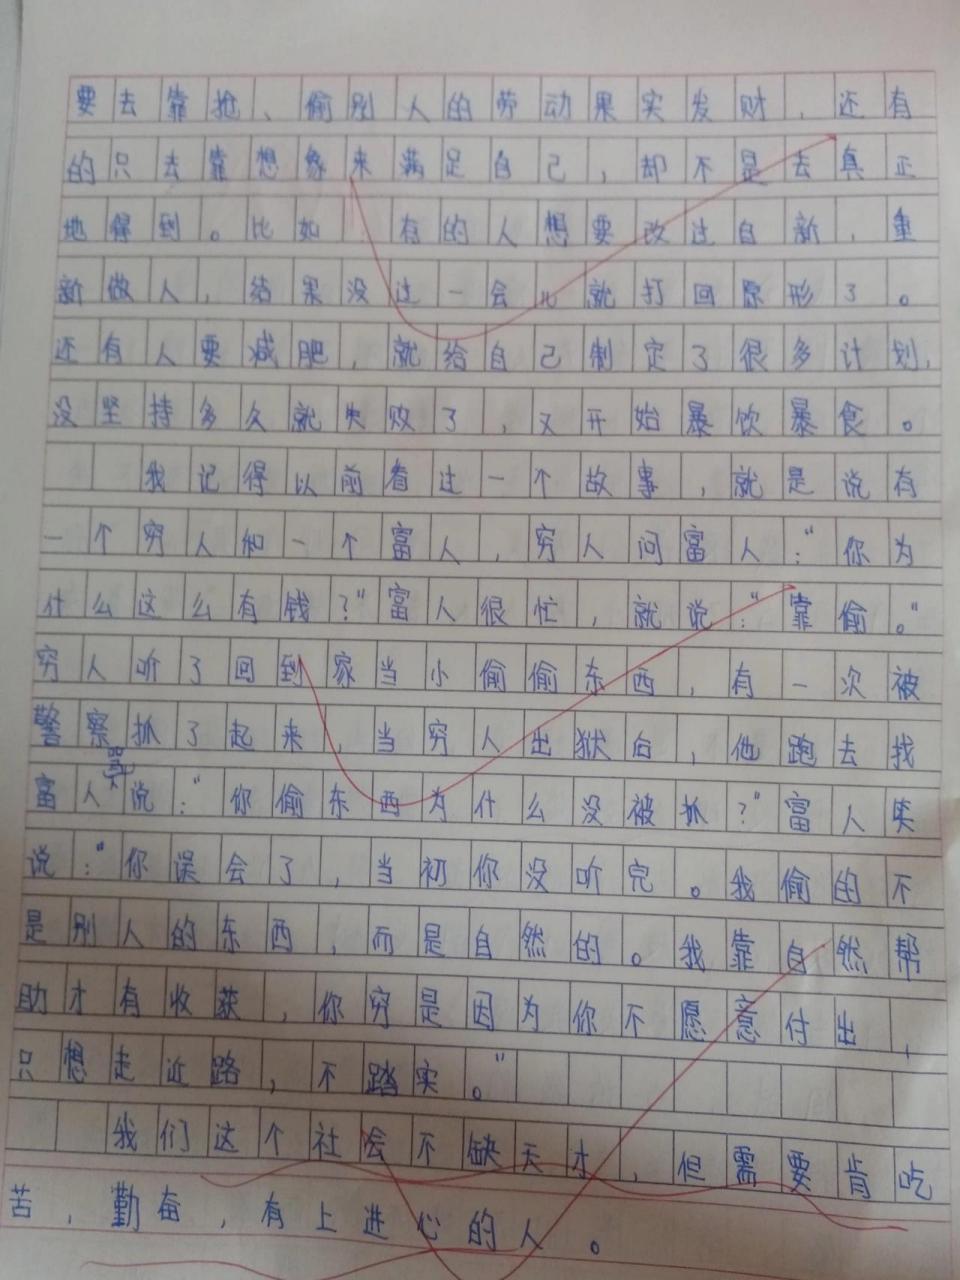 要去靠抢、偷别人的劳动果实发财，还有
的只去靠想象来满足自己，却不是去真正
地得到。比如 有的人想要改过自新，重
新做人，结果没过一会儿就打回原形了。
还有人要减肥，就给自己制定了很多计划，
没坚持多久就失败了，又开始暴饮暴食。
我记得以前看过一个故事，就是说有
一个穷人和一个富人，穷人问富人：“你为
什么这么有钱？”富人很忙，就说：“靠偷。”
穷人听了回到家当小偷偷东西，有一次被
警察抓了起来，当穷人出狱后，他跑去找
富人哭说：“你偷东西为什么没被抓？”富人笑
说：“你误会了，当初你没听完。我偷的不
是别人的东西，而是自然的。我靠自然帮
助才有收获，你穷是因为你不愿意付出，
只想走近路，不踏实。”
我们这个社会不缺天才，但需要肯吃
苦，勤奋，有上进心的人。